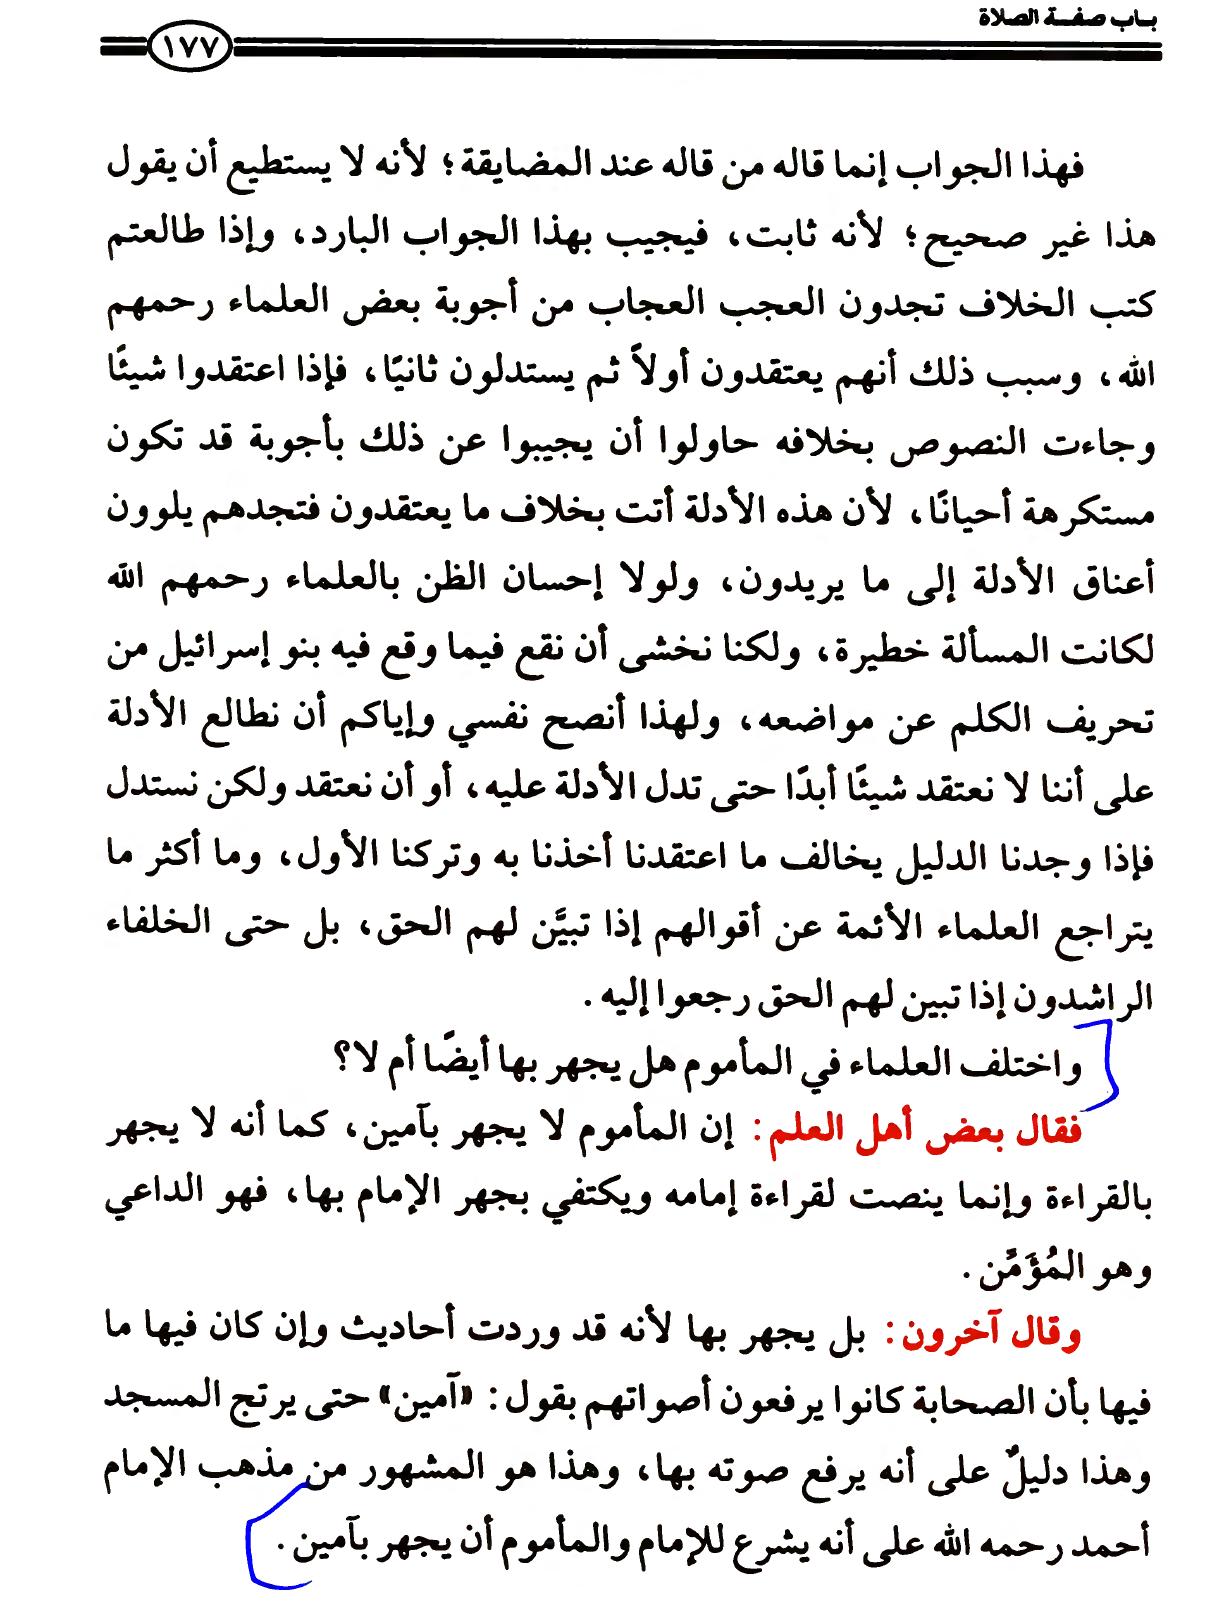 باب صفة الصلاة
١٧٧
فهذا الجواب إنما قاله من قاله عند المضايقة؛ لأنه لا يستطيع أن يقول
هذا غير صحيح؛ لأنه ثابت، فيجيب بهذا الجواب البارد، وإذا طالعتم
كتب الخلاف تجدون العجب العجاب من أجوبة بعض العلماء رحمهم
الله، وسبب ذلك أنهم يعتقدون أولاً ثم يستدلون ثانيًا، فإذا اعتقدوا شيئًا
وجاءت النصوص بخلافه حاولوا أن يجيبوا عن ذلك بأجوبة قد تكون
مستكرهة أحيانًا، لأن هذه الأدلة أتت بخلاف ما يعتقدون فتجدهم يلوون
أعناق الأدلة إلى ما يريدون، ولولا إحسان الظن بالعلماء رحمهم الله
لكانت المسألة خطيرة، ولكنا نخشى أن نقع فيما وقع فيه بنو إسرائيل من
تحريف الكلم عن مواضعه، ولهذا أنصح نفسي وإياكم أن نطالع الأدلة
على أننا لا نعتقد شيئًا أبدًا حتى تدل الأدلة عليه، أو أن نعتقد ولكن نستدل
فإذا وجدنا الدليل يخالف ما اعتقدنا أخذنا به وتركنا الأول، وما أكثر ما
يتراجع العلماء الأئمة عن أقوالهم إذا تبيَّن لهم الحق، بل حتى الخلفاء
الراشدون إذا تبين لهم الحق رجعوا إليه.
واختلف العلماء في المأموم هل يجهر بها أيضًا أم لا؟
فقال بعض أهل العلم: إن المأموم لا يجهر بآمين، كما أنه لا يجهر
بالقراءة وإنما ينصت لقراءة إمامه ويكتفي بجهر الإمام بها، فهو الداعي
وهو المُؤَمِّن.
وقال آخرون: بل يجهر بها لأنه قد وردت أحاديث وإن كان فيها ما
فيها بأن الصحابة كانوا يرفعون أصواتهم بقول: «آمين» حتى يرتج المسجد
وهذا دليلٌ على أنه يرفع صوته بها، وهذا هو المشهور من مذهب الإمام
أحمد رحمه الله على أنه يشرع للإمام والمأموم أن يجهر بآمين.